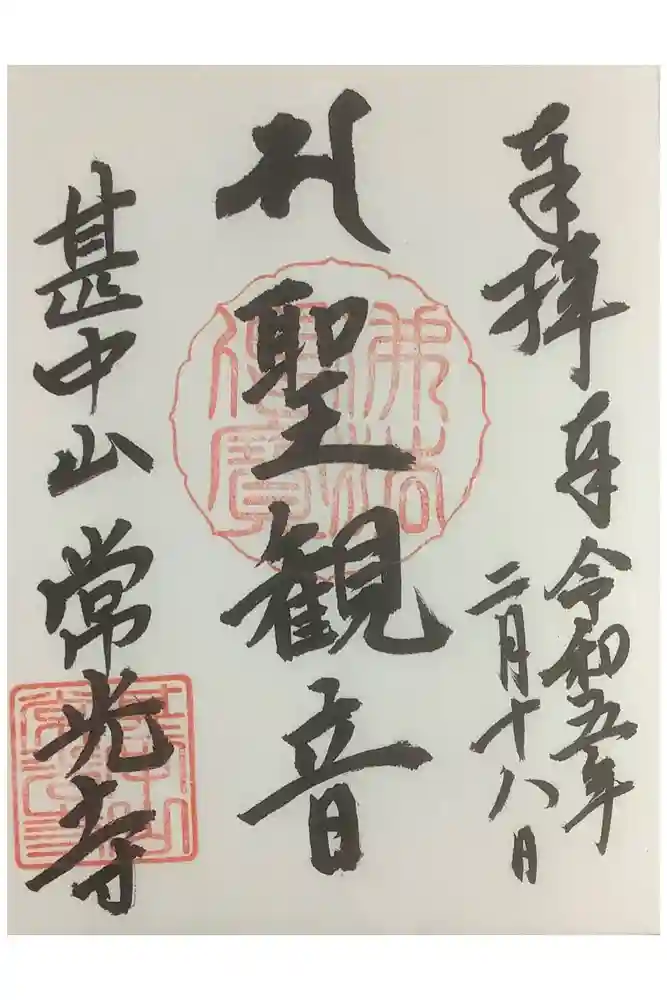 奉拝 令和五年
二月十八日
聖観音
佛法僧寶
甚中山 常光寺